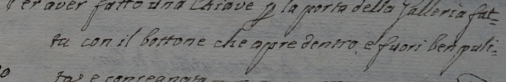 Per aver fatto una Chiave p la porta della Galleria fat-
ta con il bottone che apre dentro, e fuori ben puli-
ta, e consegnata